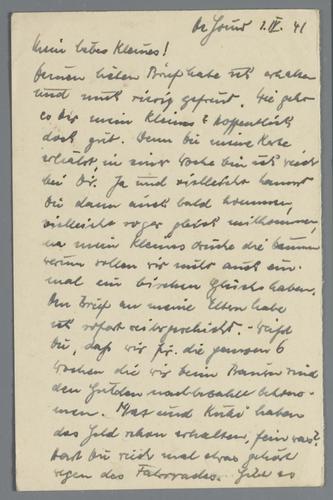 1.IV. 41
Mein liebes Kleines!
Deinen lieben Brief habe ich erhalten
und mich riesig gefreut. Wie geht
es Dir mein Kleines? Hoffentlich
doch gut. Wenn Du meine Karte
erhälst, in einer Woche bin ich
bei Dir. Ja und vielleicht kannst
Du dann auch bald kommen,
vielleicht sogar gleich mitkommen,
na mein Kleines drücke die Daumen
warum sollen wir nicht auch ein-
mal ein bischen Glück haben.
Den Brief an meine Eltern habe
ich sofort weitergeschickt. - Weißt
Du, daß wir für die ganzen 6
Wochen die wir beim waren
den Gulden nachbezahlt bekom-
men. Max und haben
das Geld schon erhalten, fein was?
Hast Du nicht mal etwas gehört
wegen des Fahrrades. es